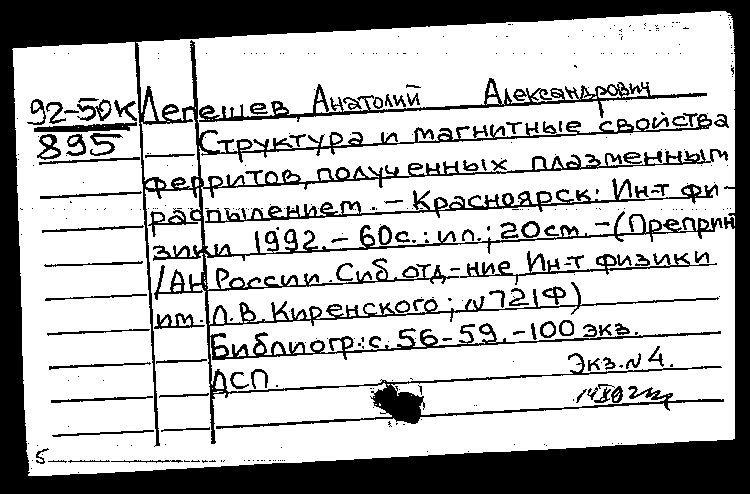 92-50К Лепешев, Анатолий Александрович
895 Структура и магнитные свойства
ферритов, полученных плазменным
распылением. – Красноярск: Ин-т фи-
зики, 1992. – 60с.: ил.; 20см. – (Препринт
/АН России. Сиб. отд-ние, Ин-т физики
им. Л.В. Киренского; №721Ф)
Библиогр.: с. 56-59. – 100 экз.
ДСП. Экз. №4.
5